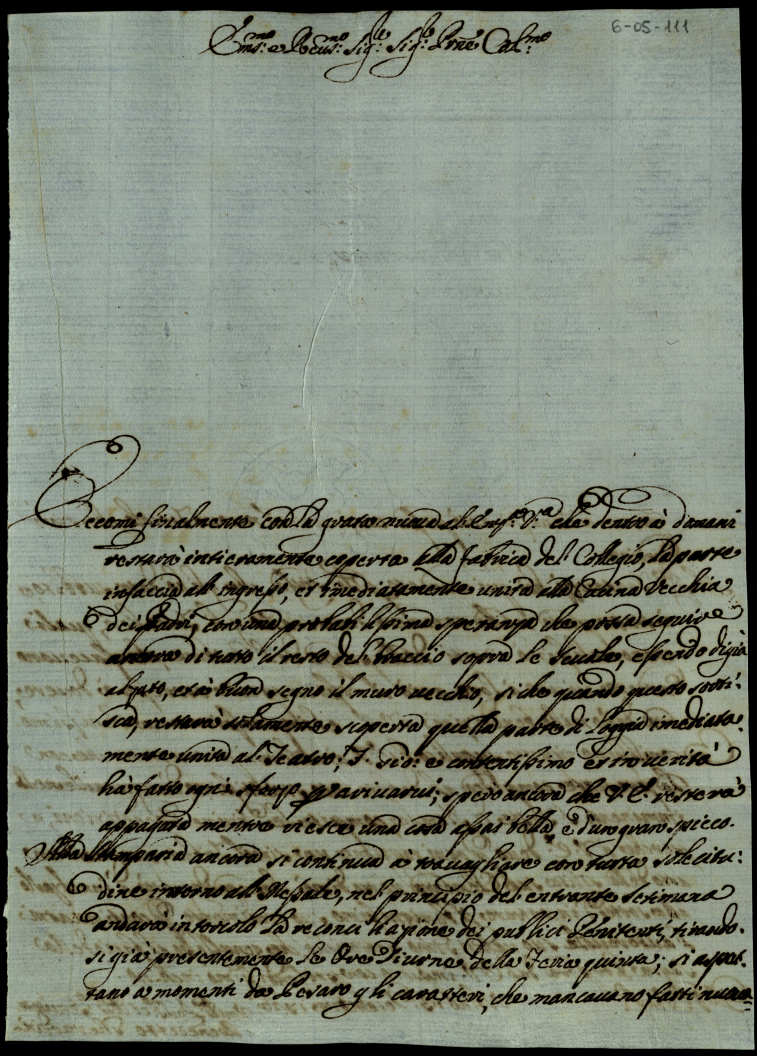 6-05-111
Em.mo e R.mo Sig.re Sig.re P.rne Col.mo
Eccomi finalmente con la grata nuova all'Em.za V.ra che dentro à dimani
restarà intieramente coperta alla fabrica del Collegio, la parte
infaccia all'ingresso, et imediatamente unita alla Cucina Vecchia
dei Padri, con una probabilissima speranza che possa seguire
ancora di tutto il resto del braccio sopra le scuole, essendo digià
alzato, et à buon segno il muro vecchio, si che quando questo sorti-
sca, restarà solamente scoperta quella parte di Loggia imediata-
mente unita al Teatro; è contentissimo et in verità
hà fatto ogni sforzo per arivarui; spero ancora che V.E. resterà
appagata mentre riesce una cosa assai bella e d'un gran spicco.
Alla stamparia ancora si continua à travagliare con tutta solecitu-
dine intorno all Messale, nel principio del entrante setimana
andarà in torcolo la reconciliazione dei publici Penitenti, tirando-
si già presentemente le Ore Diurne della Feria quinta; si aspet-
tano a momenti da Pesaro gli caratteri, che mancavano fatti